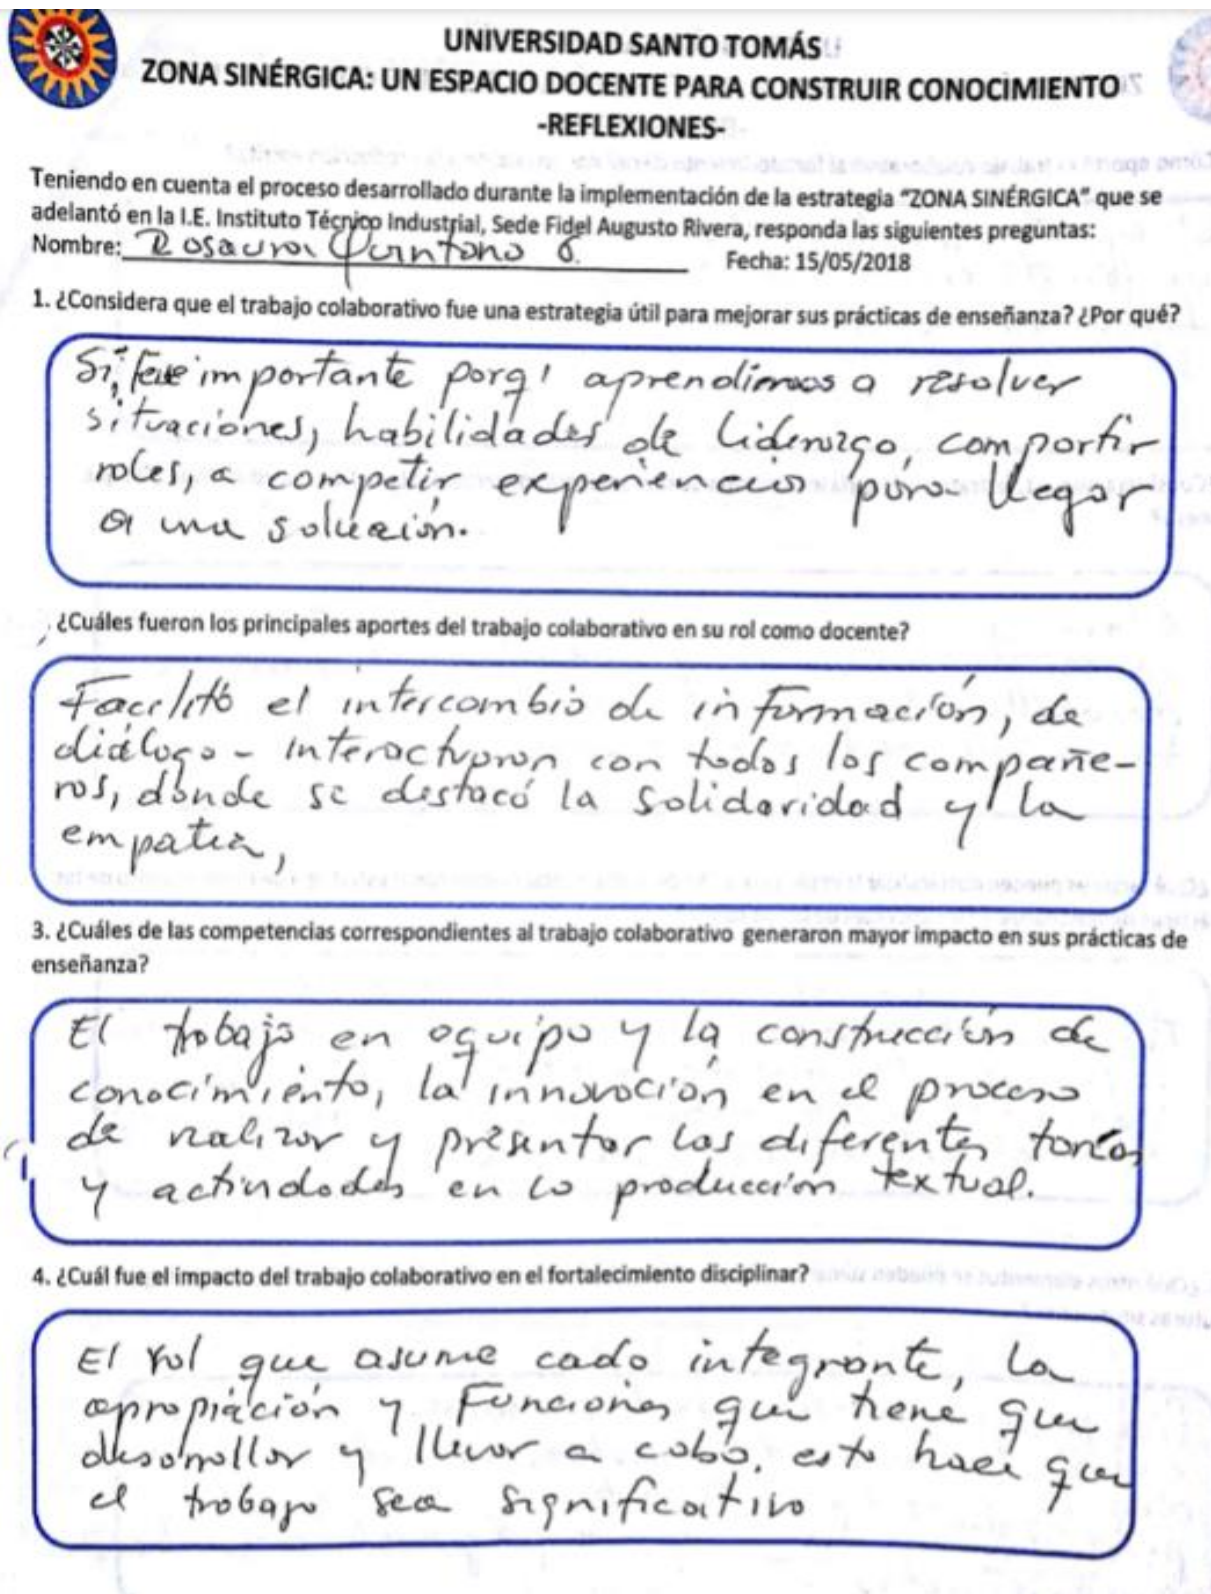 UNIVERSIDAD SANTO TOMÁS
ZONA SINÉRGICA: UN ESPACIO DOCENTE PARA CONSTRUIR CONOCIMIENTO
-REFLEXIONES-
Teniendo en cuenta el proceso desarrollado durante la implementación de la estrategia “ZONA SINÉRGICA” que se
adelantó en la I.E. Instituto Técnico Industrial, Sede Fidel Augusto Rivera, responda las siguientes preguntas:
Nombre: Rosaura Quintana G. Fecha: 15/05/2018
1. ¿Considera que el trabajo colaborativo fue una estrategia útil para mejorar sus prácticas de enseñanza? ¿Por qué?
Si, fue importante porq' aprendimos a resolver
situaciones, habilidades de liderazgo, compartir
roles, a competir experiencias para llegar
a una solución.
¿Cuáles fueron los principales aportes del trabajo colaborativo en su rol como docente?
Facilitó el intercambio de información, de
diálogo - interactuaron con todos los compañe-
ros, donde se destacó la solidaridad y la
empatía,
3. ¿Cuáles de las competencias correspondientes al trabajo colaborativo generaron mayor impacto en sus prácticas de
enseñanza?
El trabajo en equipo y la construcción de
conocimiento, la innovación en el proceso
de realizar y presentar las diferentes tareas
y actividades en la producción textual.
4. ¿Cuál fue el impacto del trabajo colaborativo en el fortalecimiento disciplinar?
El rol que asume cada integrante, la
apropiación y Funciones que tiene que
desarrollar y llevar a cabo. esto hace que
el trabajo sea significativo